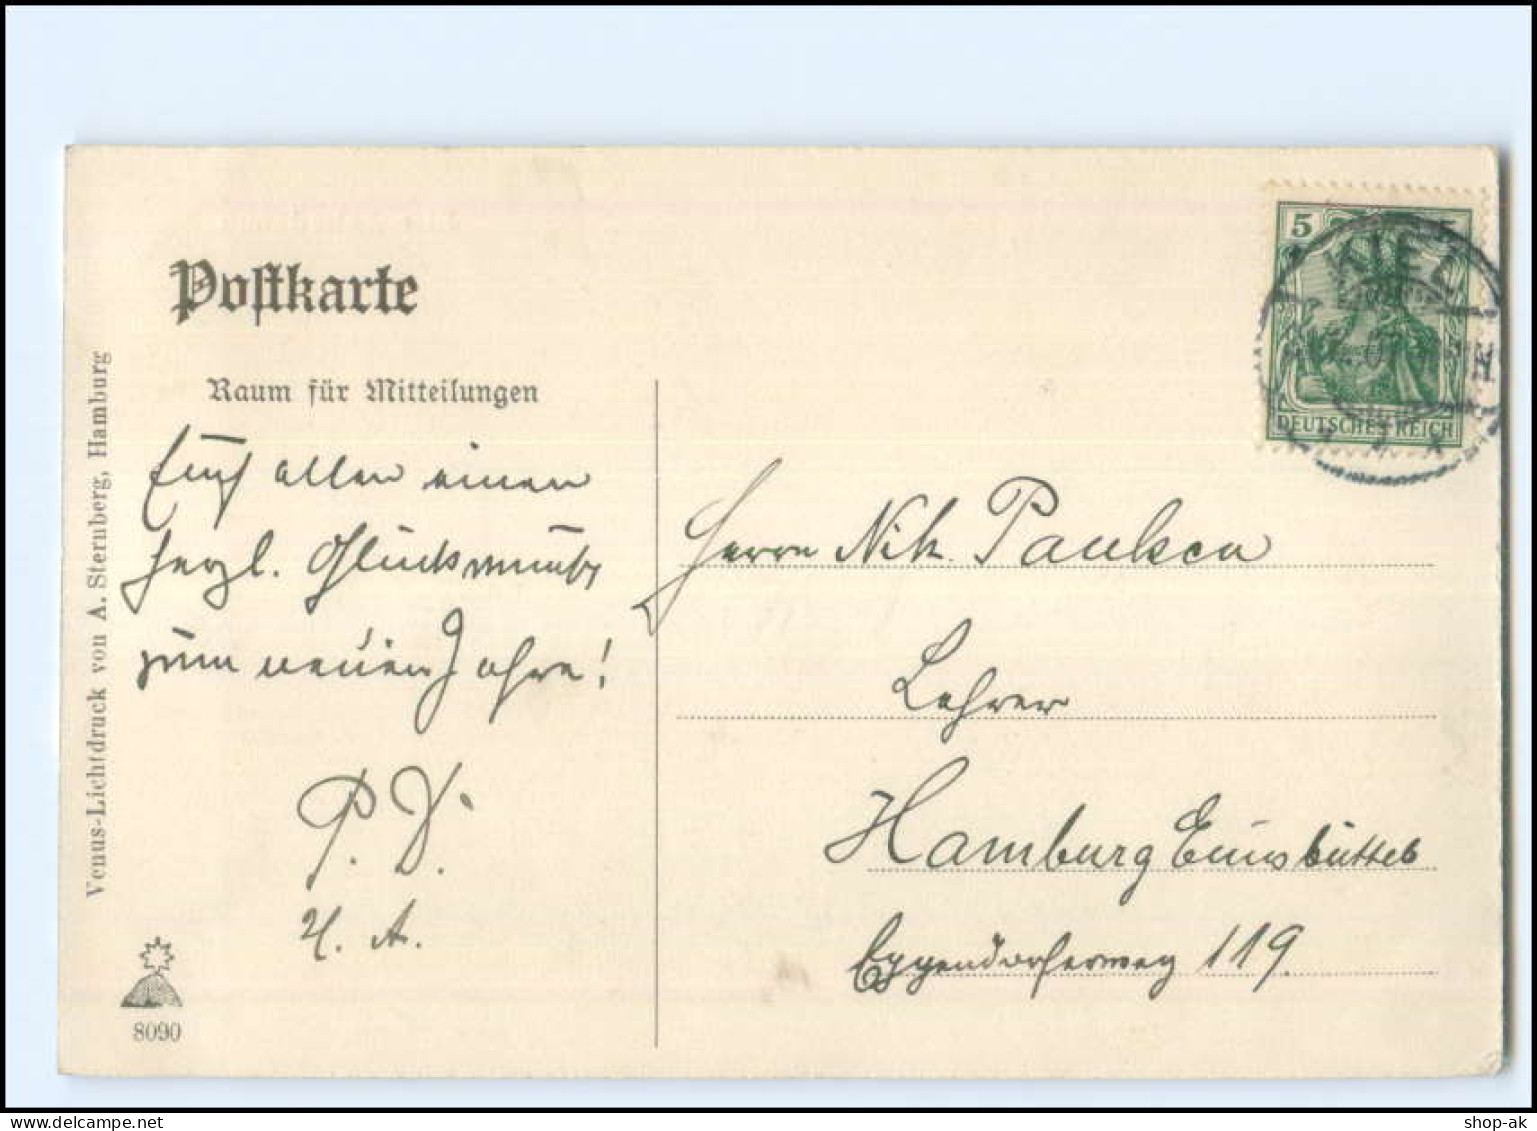 Postkarte
Raum für Mitteilungen
Euch allen einen
herzl. Glückwunsch
zum neuen Jahre!
P.
H. A.
Venus-Lichtdruck von A. Sternberg, Hamburg
8090
5
KIEL
DEUTSCHES REICH
Herrn Nik. Paulsen
Lehrer
Hamburg Eimsbüttel
Eppendorferweg 119.
shop-ak